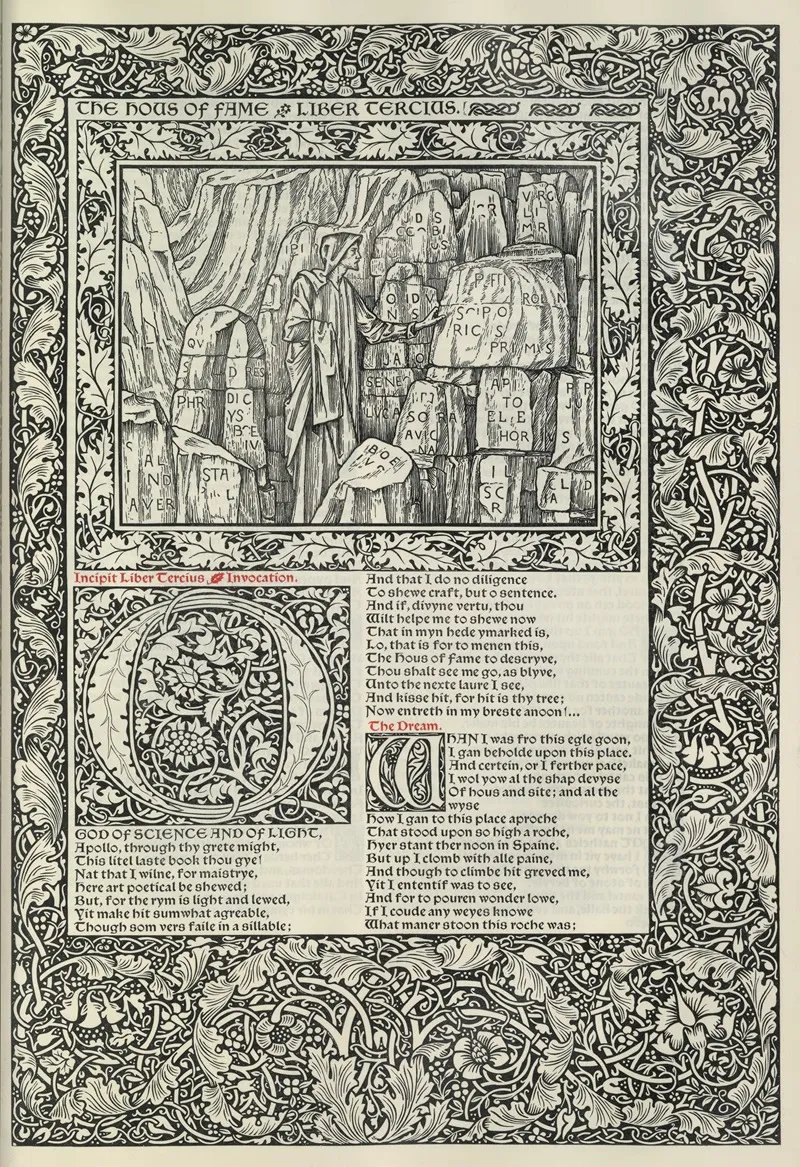 THE HOUS OF FAME LIBER TERCIUS.
OVID
SENE
LUCA
PRIMIS
PHR
STA
BOE
Incipit Liber Tercius Invocation.
O
GOD OF SCIENCE AND OF LIGHT,
Apollo, through thy grete might,
This litel laste book thou gye!
Nat that I wilne, for maistrye,
Here art poetical be shewed;
But, for the rym is light and lewed,
Yit make hit sumwhat agreable,
Though som vers faile in a sillable;
And that I do no diligence
To shewe craft, but o sentence.
And if, divyne vertu, thou
Wilt helpe me to shewe now
That in myn hede ymarked is,
Lo, that is for to menen this,
The Hous of Fame to descryve,
Thou shalt see me go, as blyve,
Unto the nexte laure I see,
And kisse hit, for hit is thy tree;
Now entreth in my breste anoon!...
The Dream.
WHAN I was fro this egle goon,
I gan beholde upon this place.
And certein, or I ferther pace,
I wol yow al the shap devyse
Of hous and site; and al the
wyse
How I gan to this place aproche
That stood upon so high a roche,
Hyer stant ther noon in Spaine.
But up I clomb with alle paine,
And though to climbe hit greved me,
Yit I ententif was to see,
And for to pouren wonder lowe,
If I coude any weyes knowe
What maner stoon this roche was;